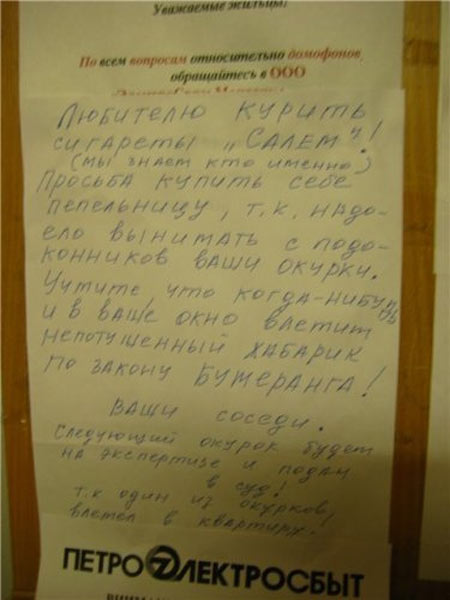 Уважаемые жильцы!
По всем вопросам относительно домофонов,
обращайтесь в ООО
Любителю курить
сигареты „Салем"!
(мы знаем кто именно)
Просьба купить себе
пепельницу, т.к. надо-
ело вынимать с подо-
конников ваши окурки.
Учтите что когда-нибудь
и в ваше окно влетит
непотушенный хабарик
по закону бумеранга!
Ваши соседи.
Следующий окурок будет
на экспертизе и подам
в суд!
т.к один из окурков
влетел в квартиру!
ПЕТРОЭЛЕКТРОСБЫТ